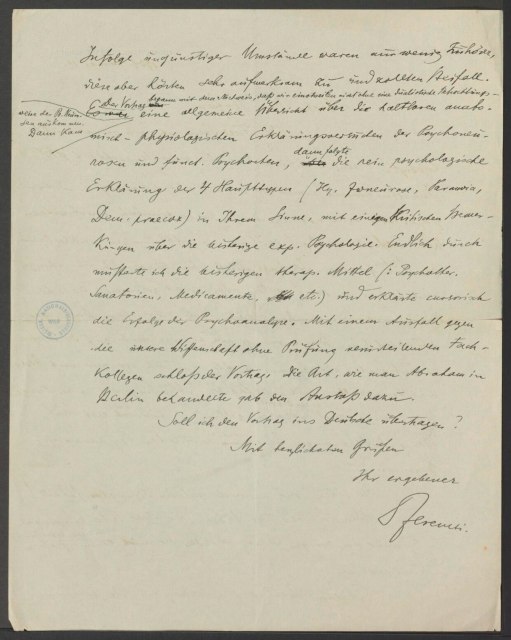 Infolge ungünstiger Umstände waren nur wenig Zuhörer,
diese aber hörten sehr aufmerksam zu und zollten Beifall.
der Vortrag begann mit dem Nachweis, daß wir einstweilen nicht ohne eine dualistische
eine allgemeine Übersicht über die haltbaren anato-
Dann kam
misch-physiologischen Erklärungsversuche der Psychoneu-
dann folgte
rosen und funct. Psychosen, die rein psychologische
Erklärung der 4 Haupttypen (Hy. Zwneurose, Paranoia,
Dem. praecox) in Ihrem Sinne, mit einigen kritischen Bemer-
kungen über die bisherige exp. Psychologie. Endlich durch
musterte ich die bisherigen therap. Mittel (: Psychother.
Sanatorien, Medicamente, etc.) und erklärte cursorisch
die Erfolge der Psychoanalyse. Mit einem Ausfall gegen
die unsere Wissenschaft ohne Prüfung verurteilenden Fach-
kollegen schloß der Vortrag. Die Art, wie man Abraham in
Berlin behandelte gab den Anstoß dazu.
Soll ich den Vortrag ins Deutsche übertragen?
Mit herzlichsten Grüßen
Ihr ergebener
Ferenczi.